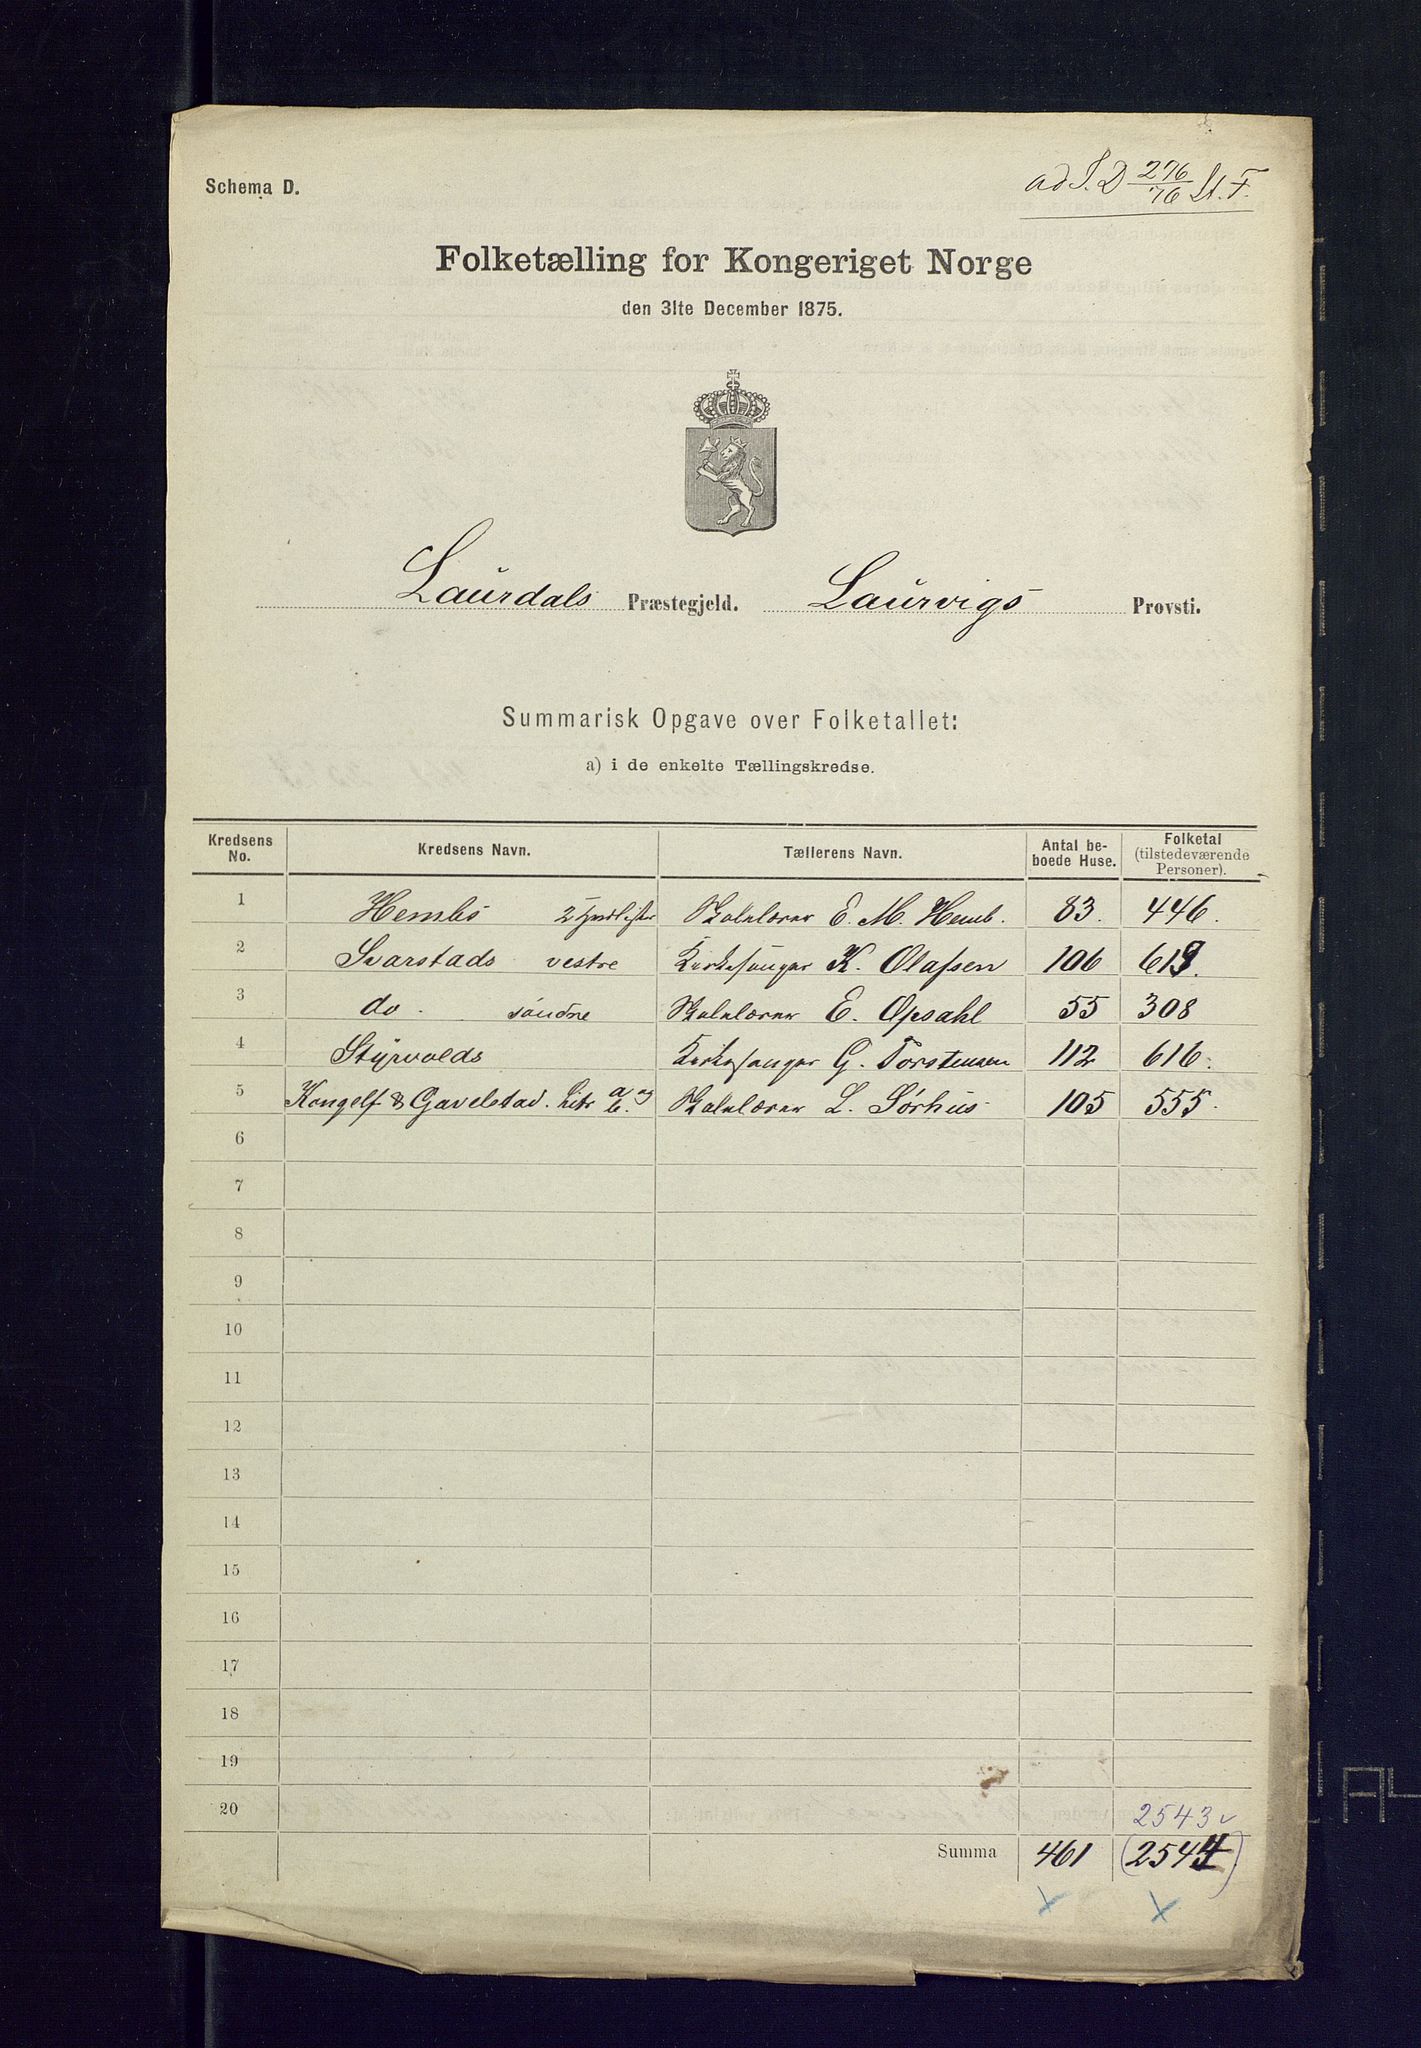 Schema D.
ad J. D 276/76 Lt. F.
Folketælling for Kongeriget Norge
den 31te December 1875.
Laurdals Præstegjeld. Laurvigs Provsti.
Summarisk Opgave over Folketallet:
a) i de enkelte Tællingskredse.
Kredsens No. Kredsens Navn. Tællerens Navn. Antal beboede Huse. Folketal (tilstedeværende Personer).
1 Hembs Skolelærer E. M. Hemb. 83. 446.
2 Svarstads vestre Kirkesanger K. Olafsen 106 619.
3 do. søndre Skolelærer E. Opsahl 55 308
4 Styrvolds Kirkesanger G. Torstensen 112 616.
5 Kongelf & Gavelstad. Litr a og b. Skolelærer L. Sørhus 105 555.
6
7
8
9
10
11
12
13
14
15
16
17
18
19
20 2543
Summa 461 (2544)